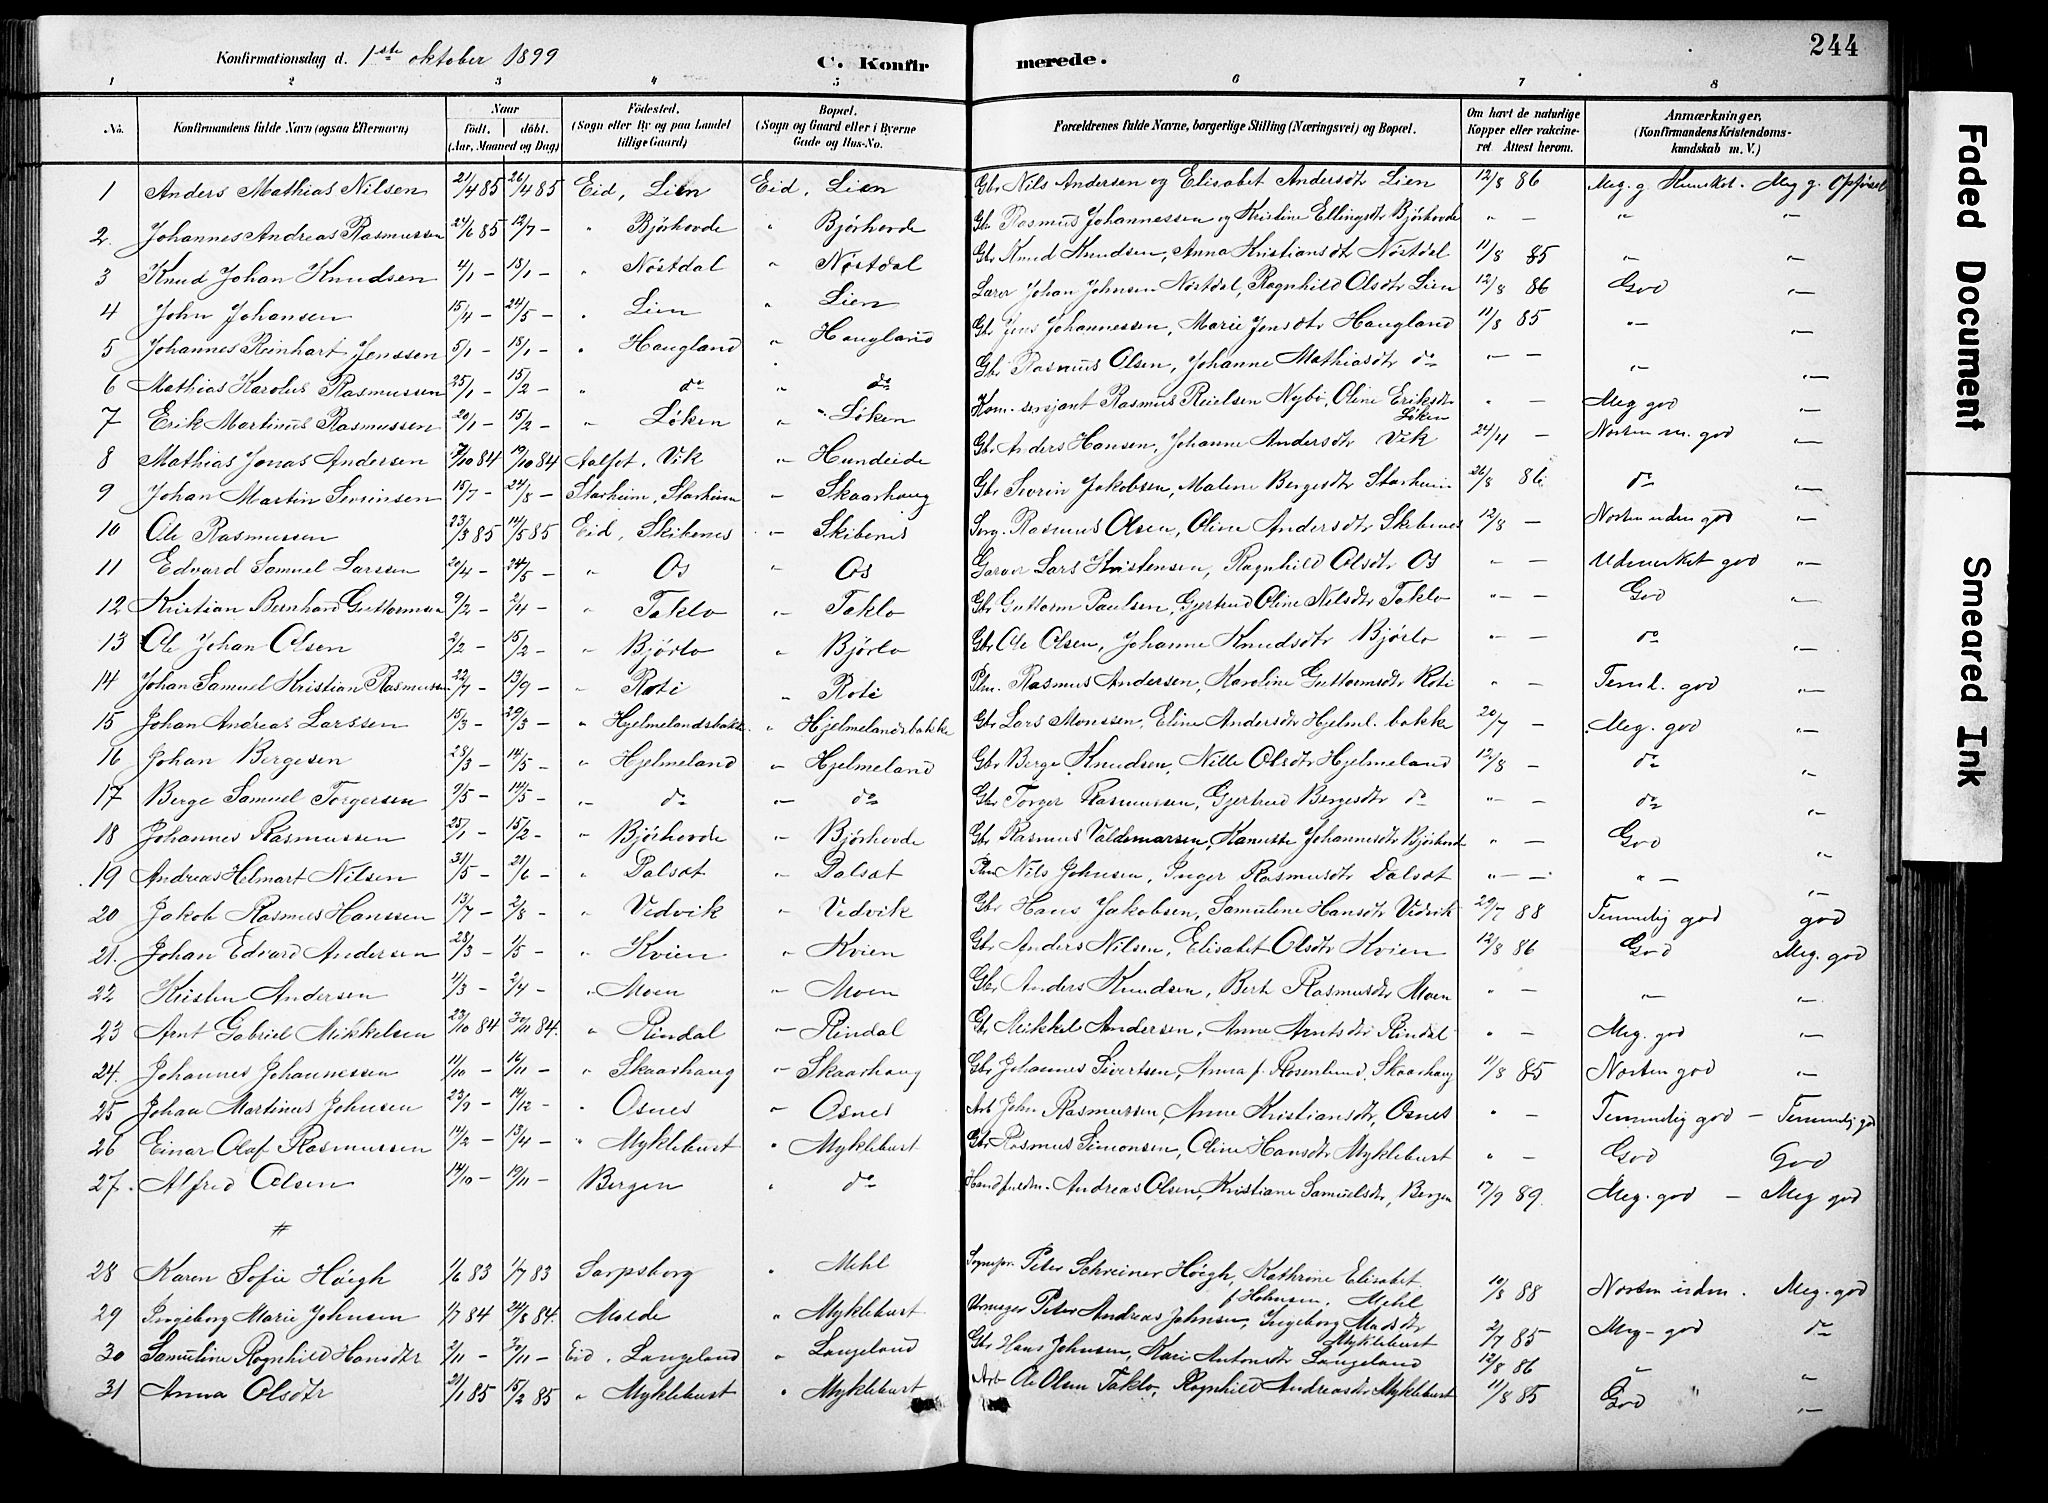 244
Konfirmationsdag d. 1ste oktober 1899 C. Konfirmerede.
1 2 3 4 5 6 7 8
No. Konfirmandens fulde Navn (ogsaa Efternavn) Naar født. døbt. (Aar, Maaned og Dag) Fødested. (Sogn eller By og paa Landet tillige Gaard) Bopæl. (Sogn og Gaard eller i Byerne Gade og Hus-No. Forældrenes fulde Navne, borgerlige Stilling (Næringsvei) og Bopæl. Om havt de naturlige Kopper eller vakcineret. Attest herom. Anmærkninger. (Konfirmandens Kristendomskundskab m. V.)
1 Anders Mathias Nilsen 21/4 85 26/4 85 Eid, Lien Eid, Lien Gbr Nils Andersen og Elisabet Andersdtr Lien 12/8 86 Meg. g. Kundsk. Meg g. Opførsel
2. Johannes Andreas Rasmussen 24/6 85 12/7 – " Bjørhovde " Bjørhovde Gbr Rasmus Johannessen og Kristine Ellingsdtr Bjørhovde " – " "
3 Knud Johan Knudsen 4/1 – 18/1 – " Nøstdal " Nøstdal Gbr Knud Knudsen, Anna Kristiansdtr Nøstdal 11/8 85 " "
4 John Johansen 15/4 – 24/5 – " Lien " Lien Lærer Johan Johnsen Nøstdal, Ragnhild Olsdtr Lien 12/8 86 God "
5 Johannes Reinhart Jenssen 5/1 – 18/1 – " Haugland " Haugland Gbr Jens Johannessen, Marie Jensdtr Haugland 11/8 85 " "
6 Mathias Karolus Rasmussen 25/1 – 15/2 – " do " do Gbr Rasmus Olsen, Johanne Mathiasdtr do " – " "
7 Erik Martinus Rasmussen 20/1 – 15/2 – " Løken " Løken Kom.-sersjant Rasmus Reielsen Nybø, Oline Eriksdtr Løken " – Meg god "
8 Mathias Jonas Andersen 7/10 84 19/10 84 Aalfot, Vik " Hundeide Gbr Anders Hansen, Johanne Andersdtr Vik 24/4 – Næsten m. god "
9 Johan Martin Severinsen 15/7 – 24/8 – Starheim, Starheim " Skaarhaug Gbr Severin Jakobsen, Malene Bergesdtr Starheim 26/8 86 do "
10 Ole Rasmussen 23/3 85 14/5 85 Eid, Skibenes " Skibenes Rasmus Olsen, Oline Andersdtr Skibenes 12/8 – Næsten uden god "
11 Edvard Samuel Larssen 20/4 – 24/5 – " Os " Os Garver Lars Kristensen, Ragnhild Olsdtr Os " – Udmerket god "
12 Kristian Bernhard Guttormsen 9/2 – 2/4 – " Taklo " Taklo Gbr Guttorm Paulsen, Gjertrud Oline Nilsdtr Taklo " – God "
13 Ole Johan Olsen 2/2 – 15/2 – " Bjørlo " Bjørlo Gbr Ole Olsen, Johanne Knudsdtr Bjørlo " – do "
14 Johan Samuel Kristian Rasmussen 22/7 – 13/9 – " Roti " Roti Plm. Rasmus Andersen, Karoline Guttormsdtr Roti " – Teml. god "
15 Johan Andreas Larssen 15/3 – 29/3 – " Hjelmelandsbakke " Hjelmelandsbakke Gbr Lars Monssen, Eline Andersdtr Hjelml. bakke 20/7 – Meg. god "
16 Johan Bergesen 28/3 – 14/5 – " Hjelmeland " Hjelmeland Gbr Berge Knudsen, Nille Olsdtr Hjelmeland 12/8 – do "
17 Berge Samuel Torgersen 9/5 – 14/5 – " do " do Gbr Torger Rasmussen, Gjertrud Bergesdtr do " – do "
18 Johannes Rasmussen 25/1 – 15/2 – " Bjørhovde " Bjørhovde Gbr Rasmus Valdemarsen, Kanutte Johannesdtr Bjørhovde " – God "
19 Andreas Helmart Nilsen 31/5 – 21/6 – " Dalsæt " Dalsæt Plm Nils Johnsen, Inger Rasmusdtr Dalsæt " – " "
20 Jakob Rasmus Hanssen 13/7 – 2/8 – " Vedvik " Vedvik Gbr Hans Jakobsen, Samuline Hansdtr Vedvik 29/7 88 Temmelig god god
21. Johan Edvard Andersen 28/3 – 1/5 – " Kvien " Kvien Gbr Anders Nilsen, Elisabet Olsdtr Kvien 12/8 86 God Meg. god
22 Kristen Andersen 1/3 – 2/4 – " Moen " Moen Gbr Anders Knudsen, Berte Rasmusdtr Moen " – " "
23 Arnt Gabriel Mikkelsen 23/10 84 30/11 84. " Rindal " Rindal Gbr Mikkel Andersen, Anne Arntsdtr Rindal " – Meg. god "
24. Johannes Johannessen 11/10 – 16/11 – " Skaarhaug " Skaarhaug Gbr Johannes Sivertsen, Anna f. Rosenlund, Skaarhaug 11/8 85 Næsten god "
25 Johan Martinus Johnsen 23/9 – 14/12 – " Osnes " Osnes Arb John Rasmussen, Anne Kristiansdtr, Osnes " – Temmelig god – Temmelig god
26 Einar Olaf Rasmussen 14/2 – 13/4 – " Myklebust " Myklebust Gbr Rasmus Simonsen, Oline Hansdtr Myklebust " – God God
27. Alfred Olsen 14/10 – 19/11 – Bergen " do Andreas Olsen, Kristiane Samuelsdtr, Bergen 17/9 89. Meg. god – Meg god
#
28 Karen Sofie Höegh 1/6 83 1/7 83 Sarpsborg " Mehl Sognepr. Peter Schreiner Höegh, Kathrine Elisabet f. Hohnsen. Mehl 10/8 88 Næsten uden. Meg. god
29 Ingeborg Marie Johnsen 1/7 84 24/8 84. Molde " Myklebust Urmager Peter Andreas Johnsen, Ingeborg Madsdtr Myklebust 2/7 85 Meg – god do
30 Samuline Ragnhild Hansdtr 2/11 – 30/11 – Eid, Langeland " Langeland Gbr Hans Johnsen, Kari Antonsdtr Langeland 12/8 86 " "
31 Anna Olsdtr 21/1 85 15/2 85 " Myklebust " Myklebust Arb Ole Olsen Taklo, Ragnhild Andreasdtr Myklebust 11/8 85 God "
Faded Document
Smeared Ink